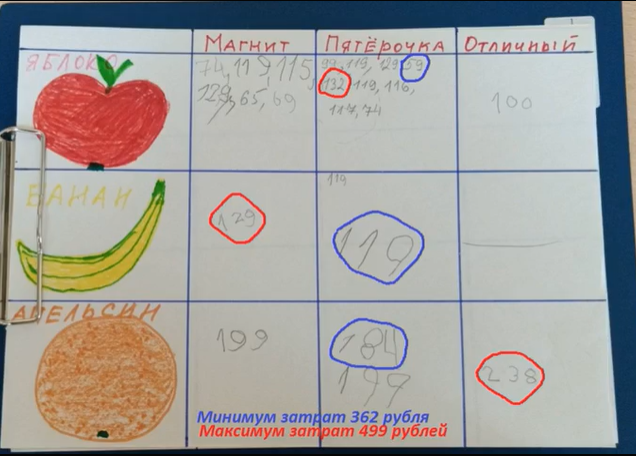 Магнит Пятёрочка Отличный
ЯБЛОКО 74, 119, 115, 99, 119, 129, 59
129, 65, 69 132, 119, 116, 100
117, 74
БАНАН 119
129 119
АПЕЛЬСИН
199 184 238
199
Минимум затрат 362 рубля
Максимум затрат 499 рублей